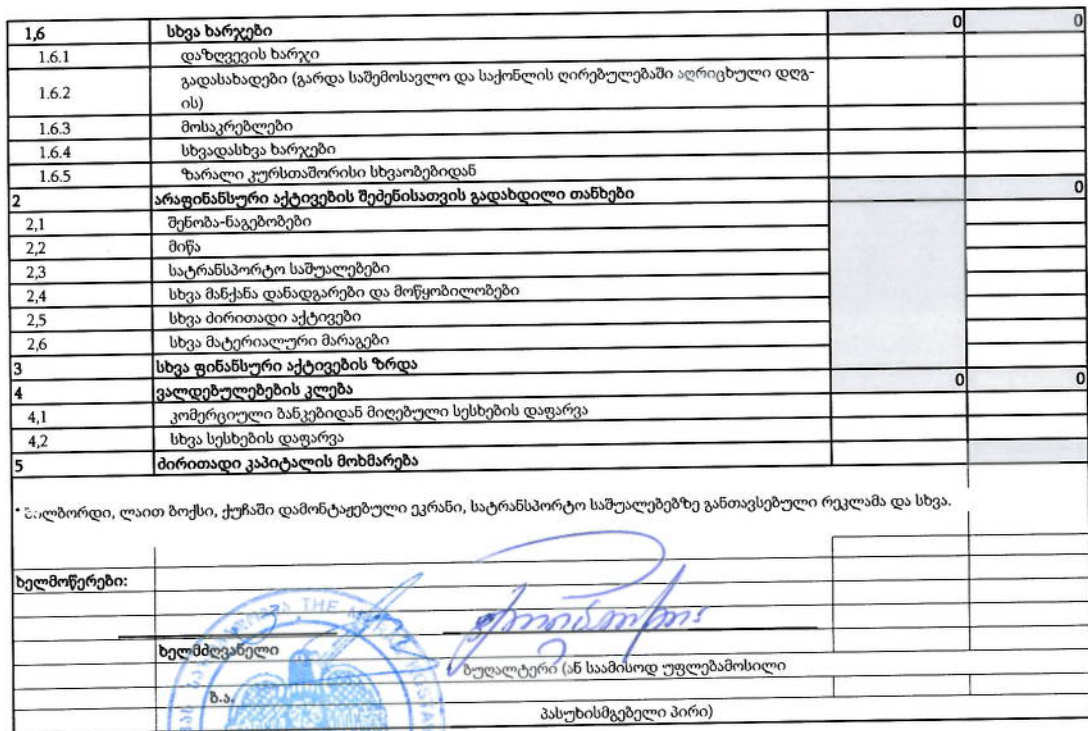 1,6 სხვა ხარჯები 0 0
1.6.1 დაზღვევის ხარჯი
1.6.2 გადასახადები (გარდა საშემოსავლო და საქონლის ღირებულებაში აღრიცხული დღგ-
ის)
1.6.3 მოსაკრებლები
1.6.4 სხვადასხვა ხარჯები
1.6.5 ზარალი კურსთაშორისი სხვაობებიდან
2 არაფინანსური აქტივების შეძენისათვის გადახდილი თანხები 0
2,1 შენობა-ნაგებობები
2,2 მიწა
2,3 სატრანსპორტო საშუალებები
2,4 სხვა მანქანა დანადგარები და მოწყობილობები
2,5 სხვა ძირითადი აქტივები
2,6 სხვა მატერიალური მარაგები
3 სხვა ფინანსური აქტივების ზრდა
4 ვალდებულებების კლება 0 0
4,1 კომერციული ბანკებიდან მიღებული სესხების დაფარვა
4,2 სხვა სესხების დაფარვა
5 ძირითადი კაპიტალის მოხმარება
* ბილბორდი, ლაით ბოქსი, ქუჩაში დამონტაჟებული ეკრანი, სატრანსპორტო საშუალებებზე განთავსებული რეკლამა და სხვა.
ხელმოწერები:
THE
ხელმძღვანელი
ბუღალტერი (ან საამისოდ უფლებამოსილი
ბ.ა.
პასუხისმგებელი პირი)